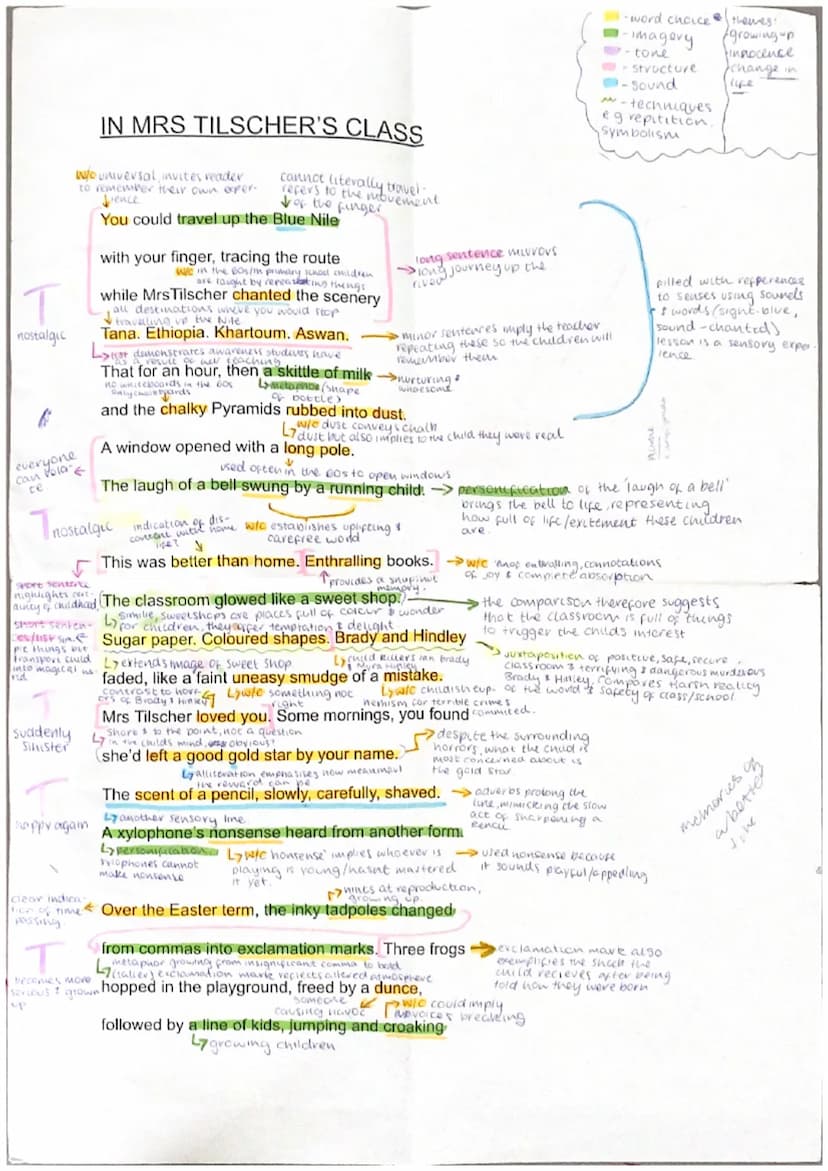 - word choice
- imagery
- tone
- structure
- sound
- techniques
e g repitition,
symbolism
themes:
growing up
innocence
change in
life
IN MRS TILSCHER'S CLASS
w/o universal, invites reader
to remember their own exper-
ience
cannot literally travel -
refers to the movement
of the finger
You could travel up the Blue Nile
with your finger, tracing the route
long sentence mirrors
long journey up the
river
w/c in the 60s/m primary school children
are taught by repeating things
while MrsTilscher chanted the scenery
all destinations where you would stop
travelling up the Nile
T
nostalgic
Tana. Ethiopia. Khartoum. Aswan.
minor sentences imply the teacher
repeating these so the children will
remember them
filled with refferences
to senses using sounds
& words (sight-blue,
sound - chanted)
lesson is a sensory exper-
ience
list demonstrates awareness students have
as a result of her teaching
That for an hour, then a skittle of milk
nurturing &
wholesome
no whiteboards in the 60s
only chalkboards
metaphor (shape
of bottle)
and the chalky Pyramids rubbed into dust.
w/c dust conveys chalk
dust but also implies to the child they were real
A window opened with a long pole.
used often in the 60s to open windows
everyone
can rela-
te
The laugh of a bell swung by a running child.
personification of the 'laugh of a bell'
brings the bell to life, representing
how full of life/exitement these children
are.
T nostalgic
indication of dis-
content with home
life?
w/c establishes uplifting &
carefree world
This was better than home. Enthralling books.
w/c 'most enthralling, connotations
of joy & complete absorption
provides a snapshot
memory.
short sentence
highlights
of childhood
The classroom glowed like a sweet shop.
the comparison therefore suggests
that the classroom is full of things
to trigger the childs interest
simile, sweetshops are places full of colour & wonder
for children, they offer temptation & delight
short senten-
ces/list
things but
transport child
into magical
Sugar paper. Coloured shapes. Brady and Hindley
juxtaposition of positive, safe, secure
classroom & terrifying & dangerous murderous
Brady & Hindley. Compares harsh reality
of the world & safety of class/school
extends image of sweet shop
child killers Ian Brady
& Myra Hindley
faded, like a faint uneasy smudge of a mistake.
contrast to horr-
ors of Brady & Hindley
w/c something not
right
w/c childish eup-
hemism for terrible crimes
commited.
T
suddenly
sinister
Mrs Tilscher loved you. Some mornings, you found
short & to the point, not a question
in the childs mind, obvious?
she'd left a good gold star by your name.
despite the surrounding
horrors, what the child is
most concerned about is
the gold star
alliteration emphasises how meaningful
the reward can be
The scent of a pencil, slowly, carefully, shaved.
adverbs prolong the
line, mimicking the slow
act of sharpening a
pencil
memories of
a better
time
T
happy again
another sensory line
A xylophone's nonsense heard from another form.
personification
xylophones cannot
make nonsense
w/c 'nonsense' implies whoever is
playing is young/hasnt mastered
it yet.
used nonsense because
it sounds playful/appealing
hints at reproduction,
growing up.
clear indica-
tion of time
passing
Over the Easter term, the inky tadpoles changed
from commas into exclamation marks. Three frogs
exclamation mark also
exemplifies the shock the
child recieves after being
told how they were born
metaphor growing from insignificant comma to bold
(taller) exclamation mark reflects altered atmosphere
T
becomes more
serious & grown
up
hopped in the playground, freed by a dunce,
someone
causing havoc
w/c could imply
voices breaking
followed by a line of kids, jumping and croaking
growing children